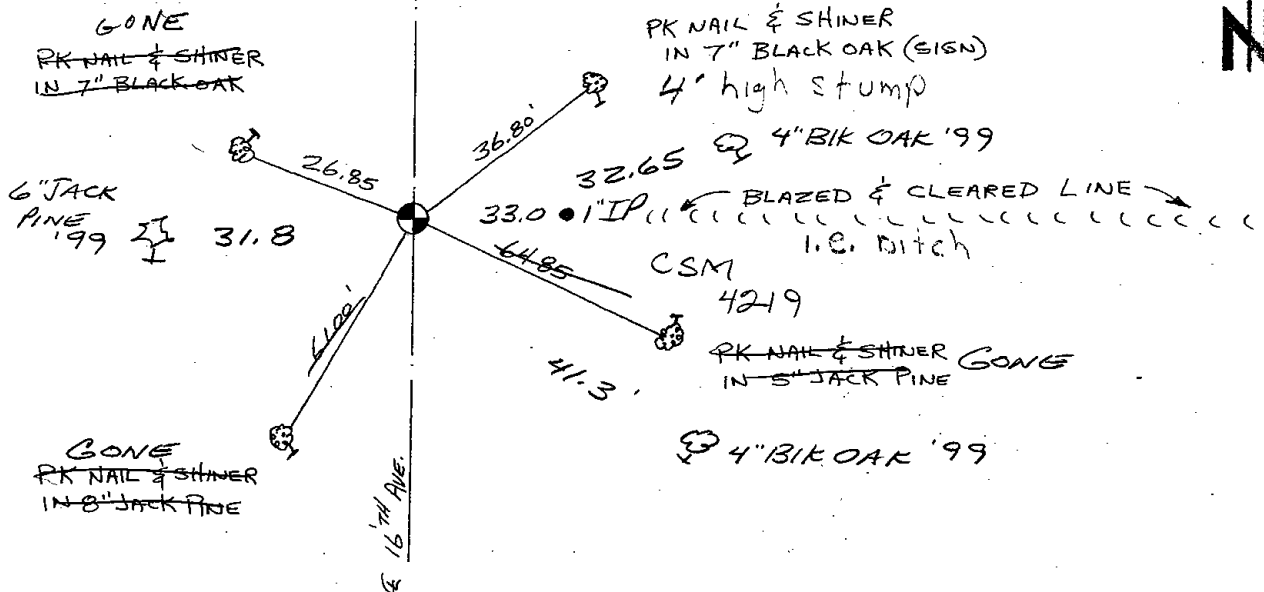 GONE
PK NAIL & SHINER
IN 7" BLACK OAK
PK NAIL & SHINER
IN 7" BLACK OAK (SIGN)
4' high stump
N
36.80'
26.85
4" BlK OAK '99
32.65
6" JACK
PINE
'99
31.8
33.0
1" IP
BLAZED & CLEARED LINE
I.e. Ditch
64.85
CSM
4219
PK NAIL & SHINER
IN 5" JACK PINE
GONE
41.3'
GONE
PK NAIL & SHINER
IN 8" JACK PINE
4" BlK OAK '99
℄ 16'TH AVE.